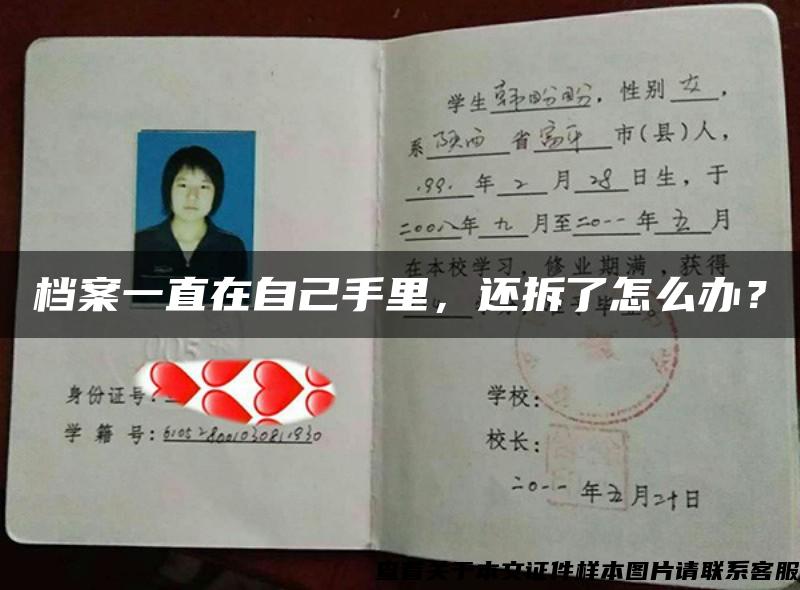 学生韩盼盼，性别女，
系陕西省富平市(县)人，
1991年2月28日生，于
二00八年九月至二0一一年五月
在本校学习，修业期满，获得
档案一直在自己手里，还拆了怎么办？
身份证号：
学籍号：610528001030811930
学校：
校长：
二0一一年五月二十日
查看关于本文证件样本图片请联系客服